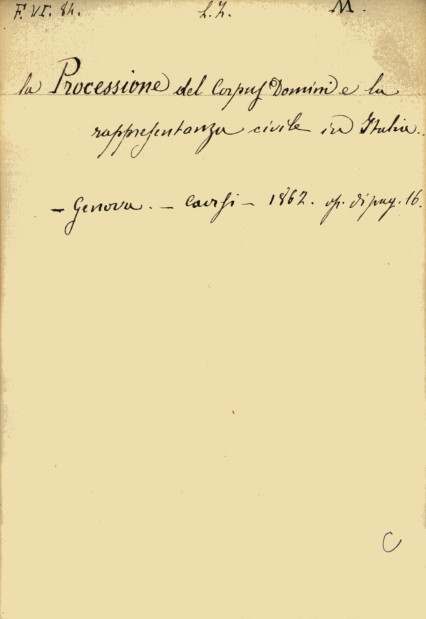 F. VI. 84. L.Z. M.
la Processione del Corpus Domini e la
rappresentanza civile in Italia.
- Genova. - Caorsi - 1862. op. di pag. 16.
C